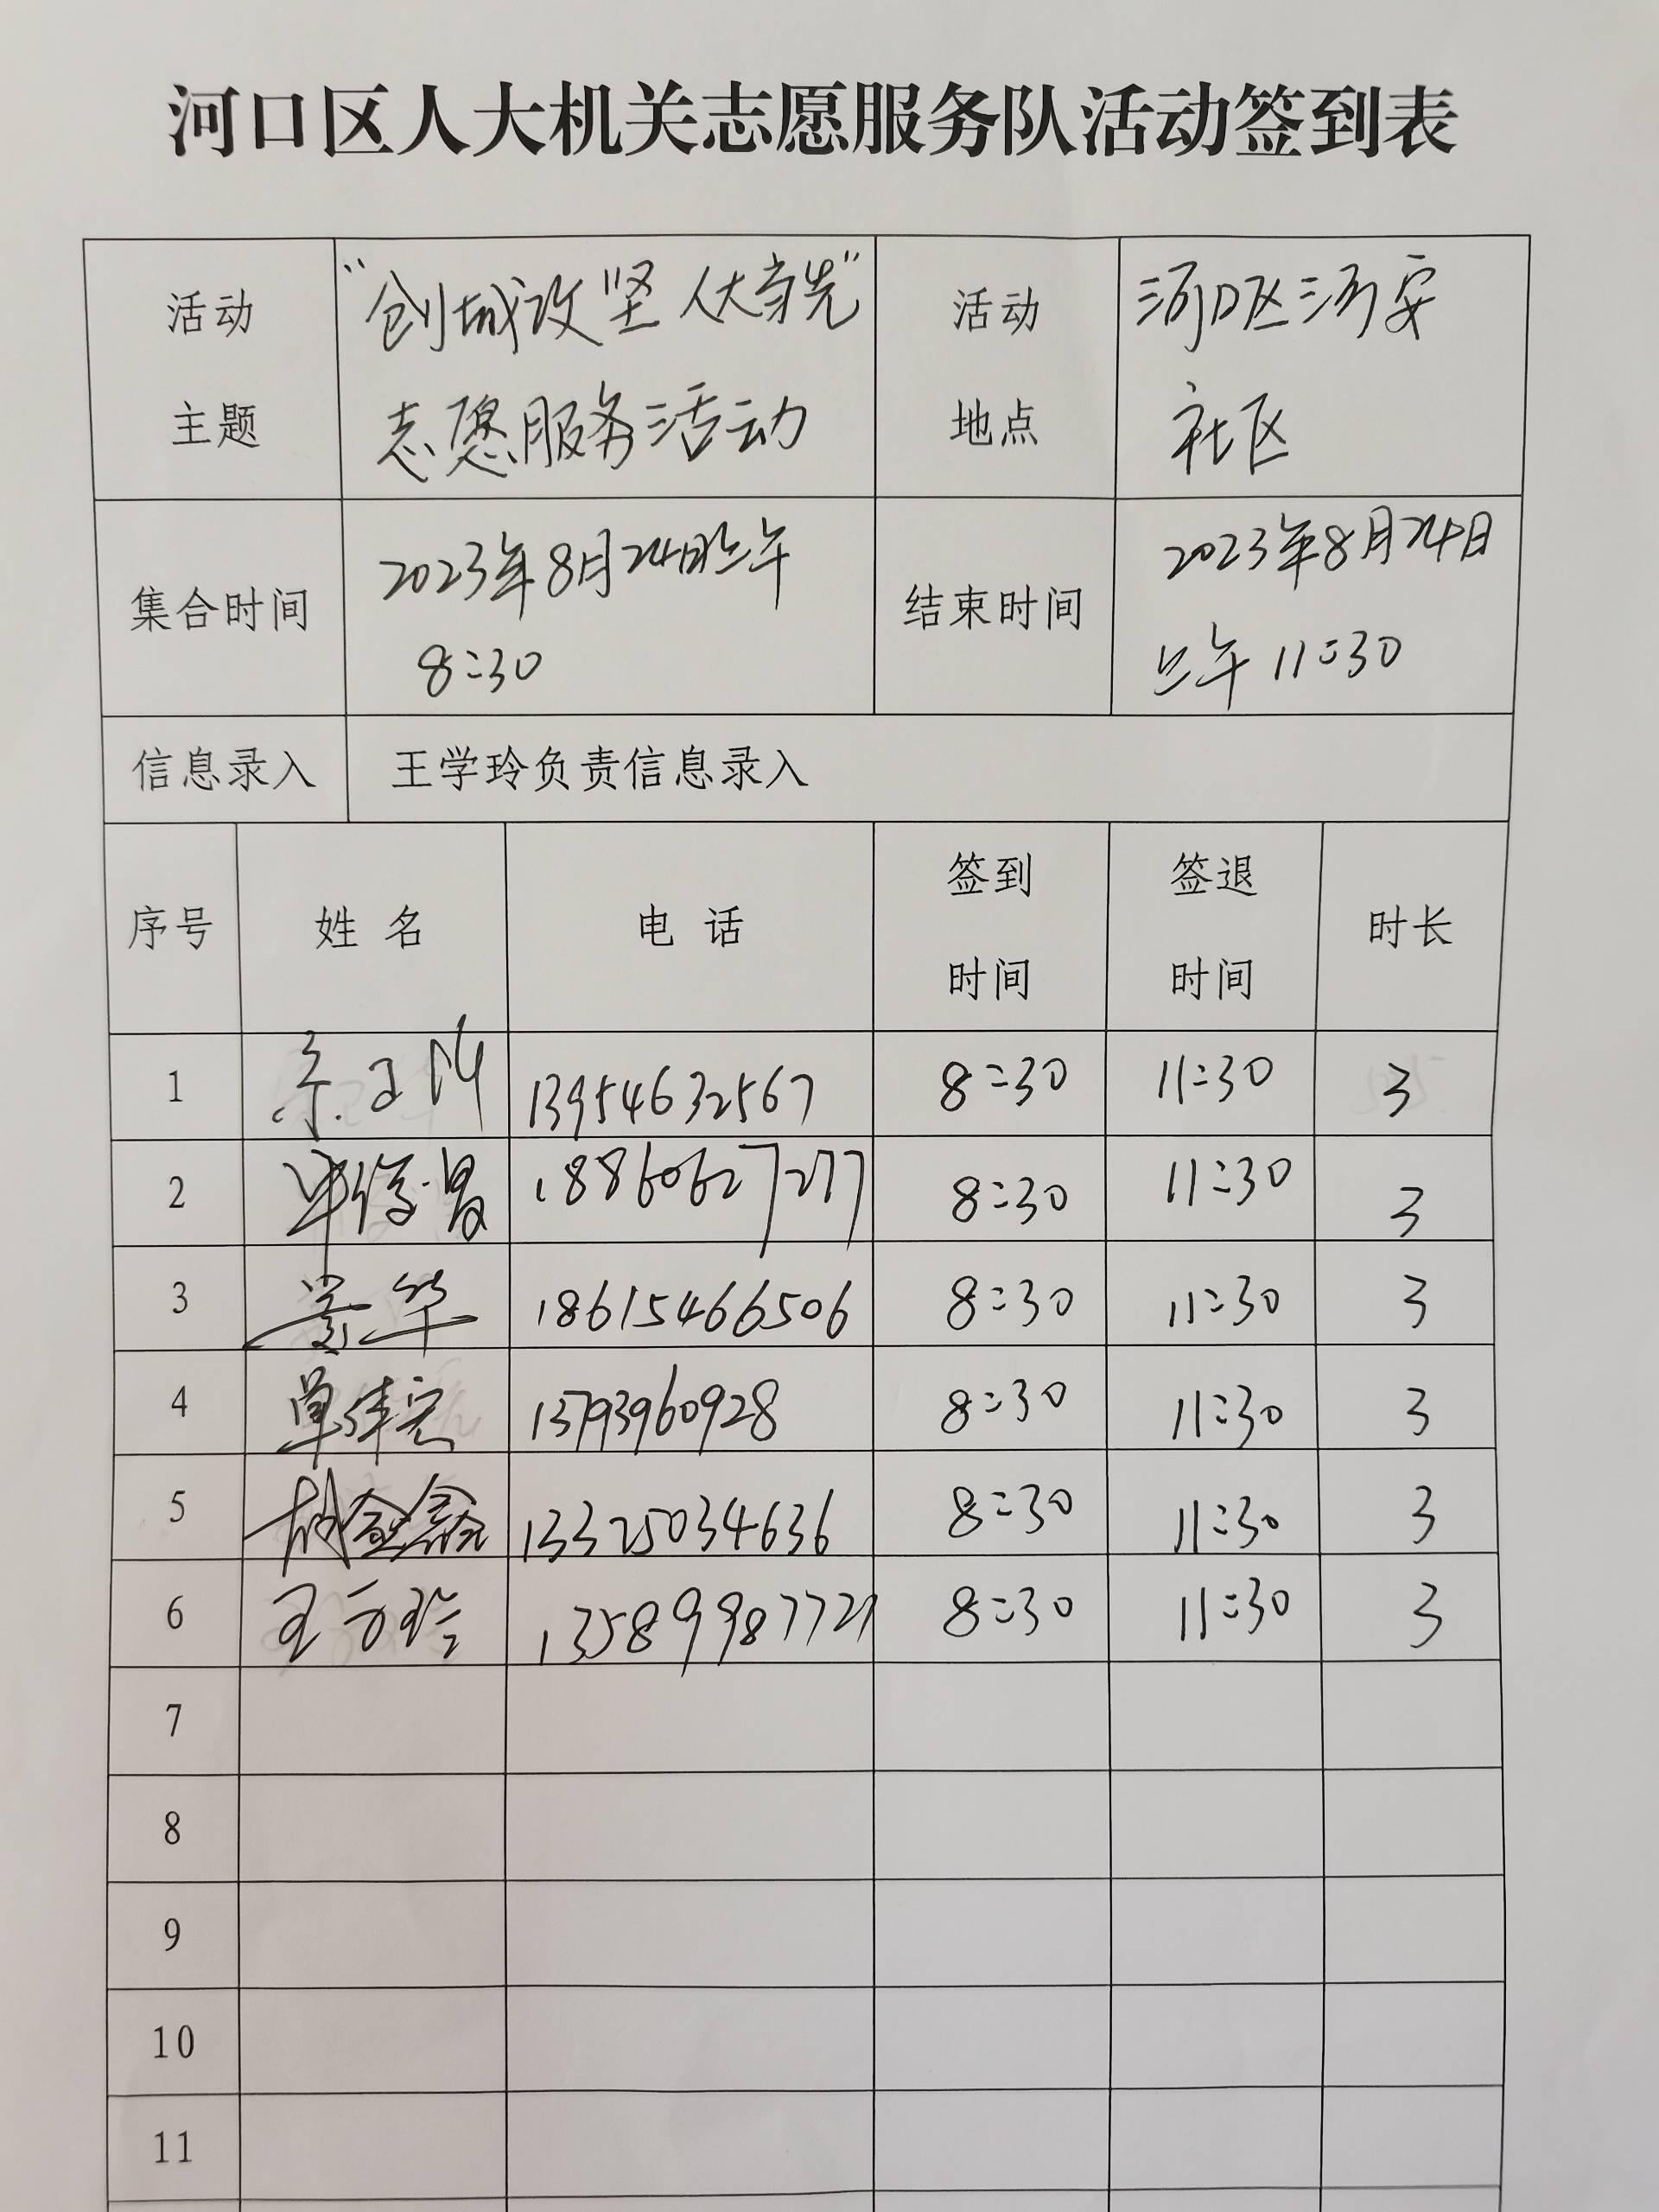 河口区人大机关志愿服务队活动签到表
活动
主题
“创城攻坚 人大当先”
志愿服务活动
活动
地点
河口区河安
社区
集合时间
2023年8月24日上午
8:30
结束时间
2023年8月24日
上午 11:30
信息录入
王学玲负责信息录入
序号 姓名 电话 签到时间 签退时间 时长
1 13954632567 8:30 11:30 3
2 18860627277 8:30 11:30 3
3 18615466506 8:30 11:30 3
4 13793960928 8:30 11:30 3
5 13325034636 8:30 11:30 3
6 王学玲 8:30 11:30 3
7
8
9
10
11